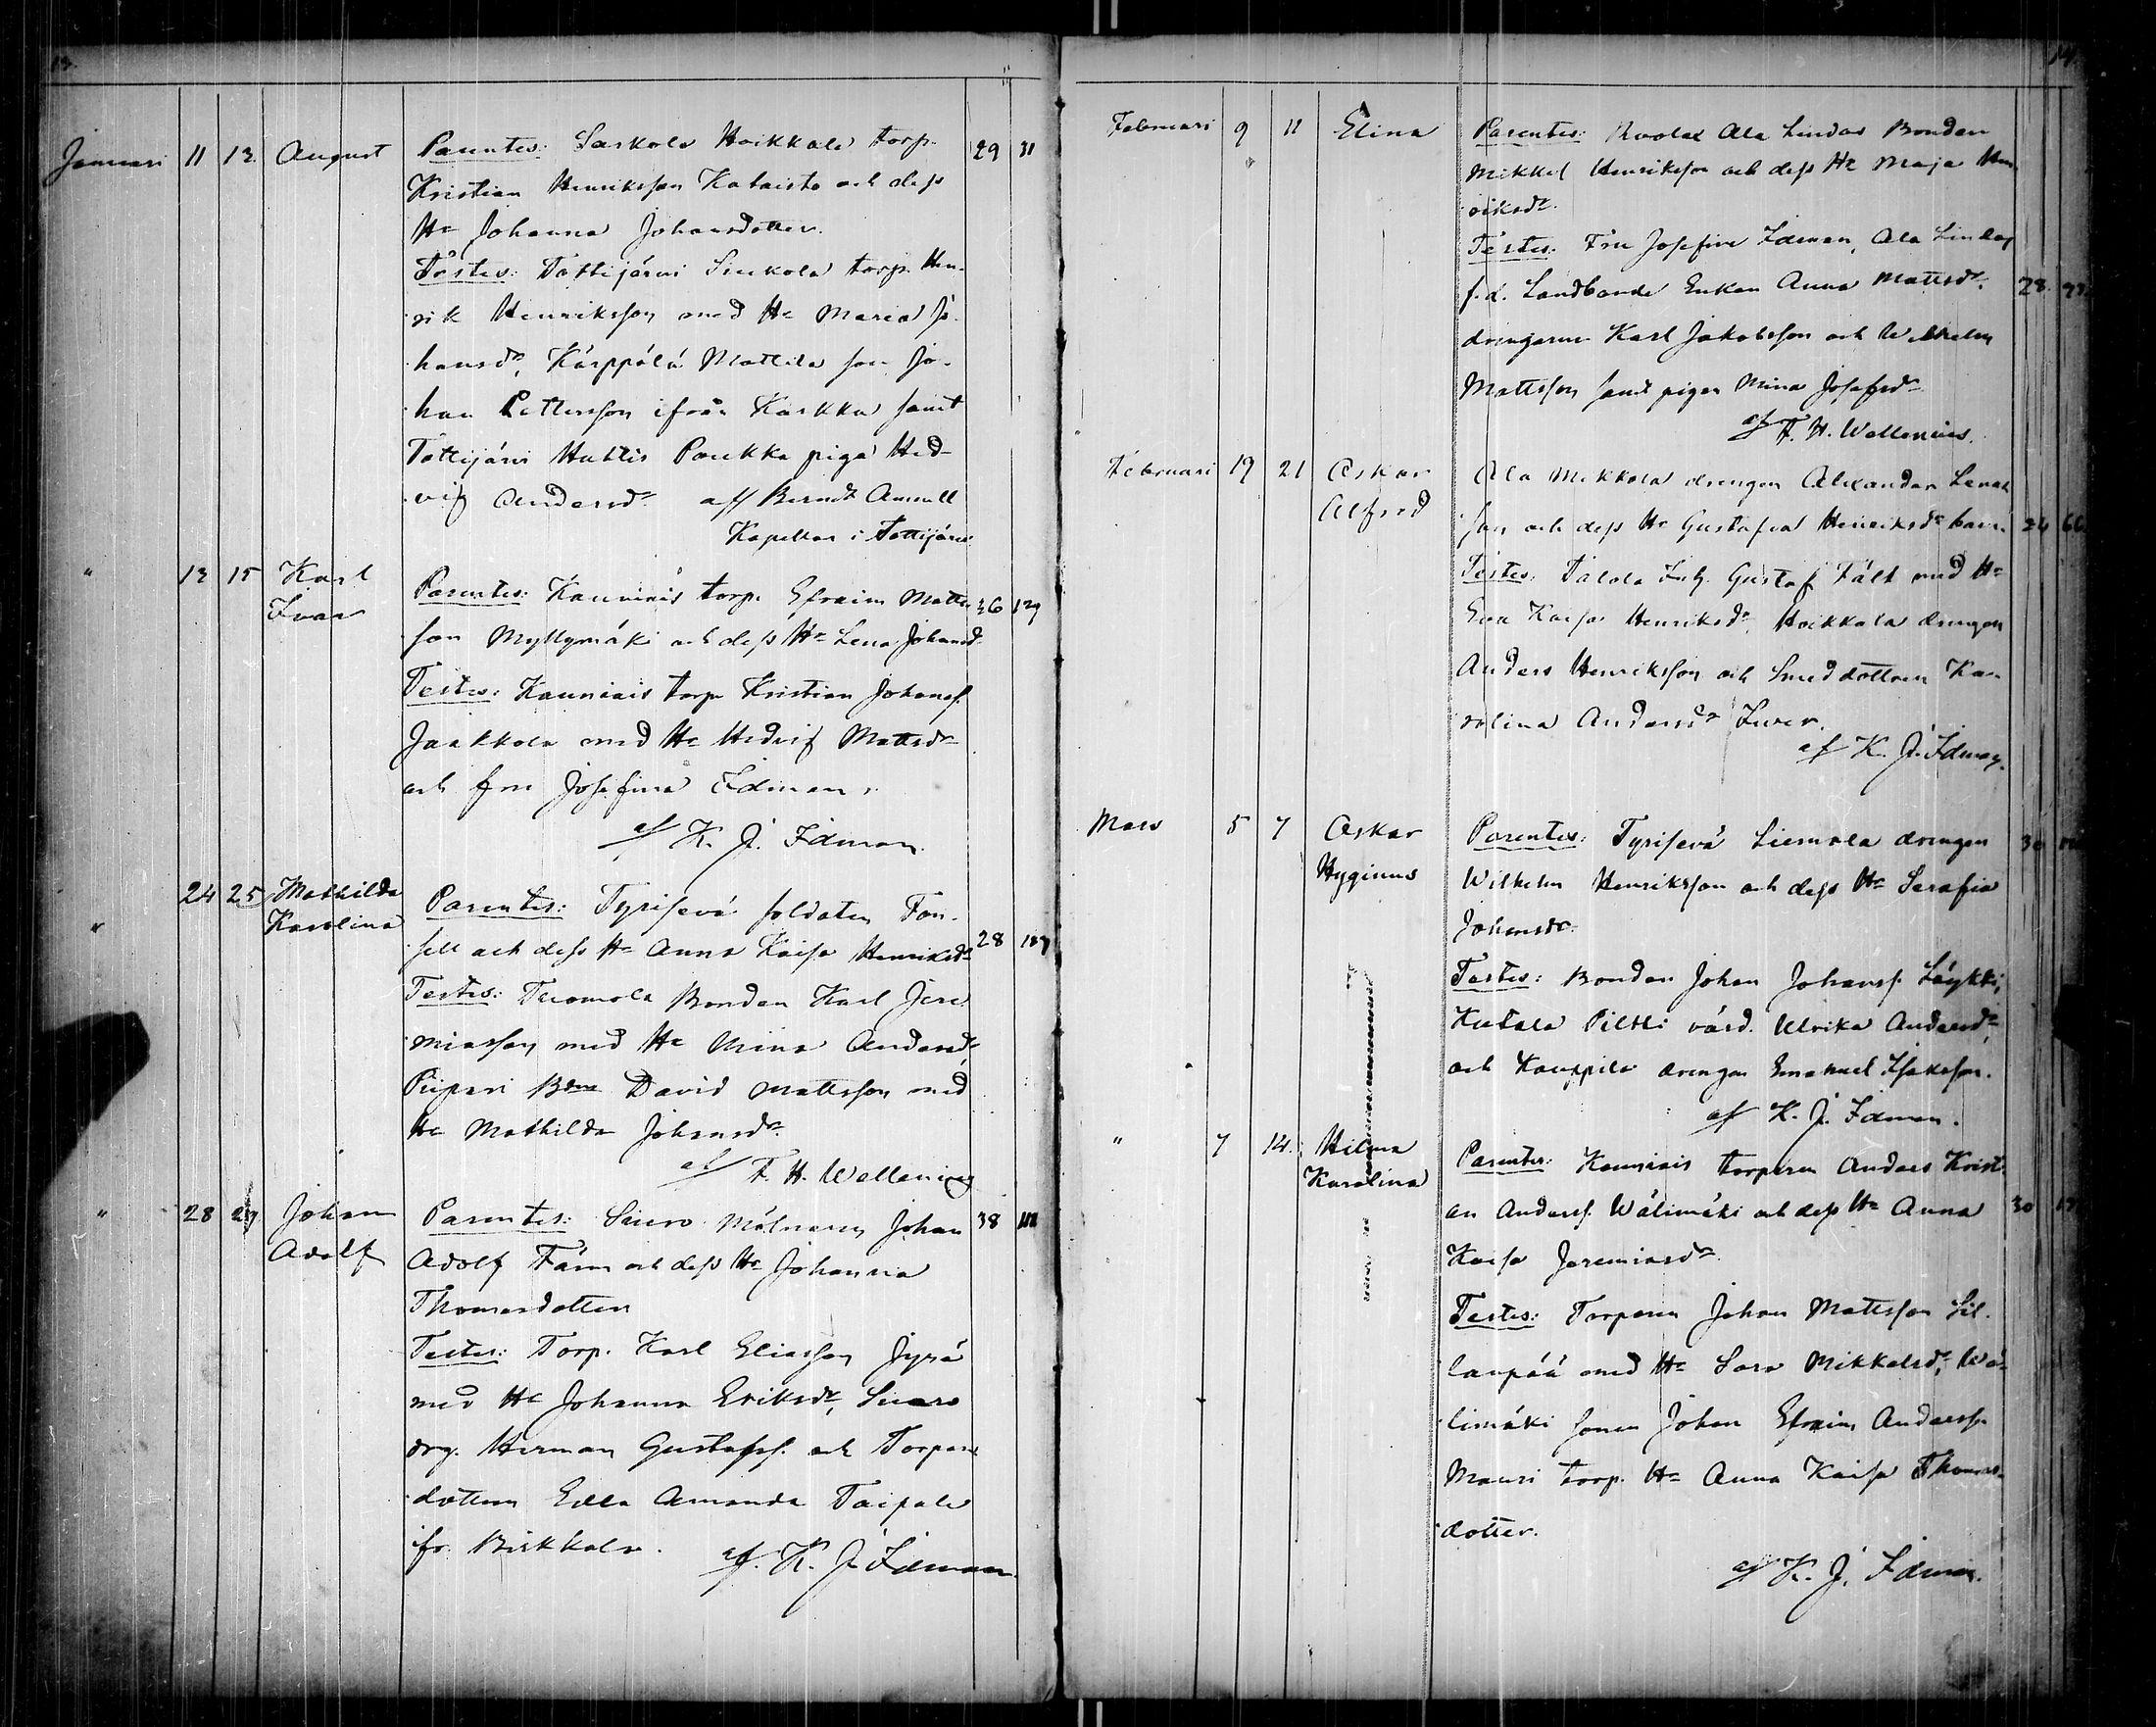 13.
Januari 11 13. August Parentes: Saskola Hoikkala torp. 29 31
Kristian Henriksson Kataisto och dess
Hu Johanna Johansdotter.
Testes: Tottijärvi Siukola torp. Hen-
rik Henriksson med Hu Maria Jo-
hansdr, Kärppälä Mattila son Jo-
han Pettersson ifrån Karkku samt
Tottijärvi Huhtis Poukka piga Hed-
vig Andersdr af Berndt Amnell
Kapellan i Tottijärvi
" 13 15 Karl Parentes: Kauniais torp. Efraim Matts- 36 129
Ivar son Myllymäki och dess Hu Lena Johansd.
Testes: Kauniais torp. Kristian Johanss.
Jaakkola med Hu Hedvig Mattsdr
och fru Josefina Idman.
af K. J. Idman.
" 24 25 Mathilda Parentes: Tyrisevä soldaten Fon-
Karolina sell och dess Hu Anna Kaisa Henriksdr 28 187
Testes: Tuomola Bonden Karl Jere-
miasson med Hu Miina Andersdr,
Piipari Bdn David Mattsson med
Hu Mathilda Johansdr.
af F. H. Wallenius
" 28 29 Johan Parentes: Siuro Mölnaren Johan 38 111
Adolf Adolf Färm och dess Hu Johanna
Thomasdotter
Testes: Torp. Karl Eliasson Jyrä
med Hu Johanna Eriksdr, Siuro
drg. Herman Gustafss. och Torpare
dottern Edla Amanda Taipale
ifr. Birkkala. af. K. J. Idman.
14.
Februari 9 11 Elina Parentes: Ala Lindas Bonden
Mikkel Henriksson och dess Hu Maja Hen-
riksdr.
Testes: Fru Josefine Idman, Ala Lindas
f.d. Landbonde Enkan Anna Mattsdr, 28.
drengarne Karl Jakobsson och Wilhelm
Mattsson samt pigan Mina Josefsdr
af F. H. Wallenius.
Februari 19 21 Oskar Ala Mikkola drengen Alexander
Alfred son och dess Hu Gustafva Henriksdr barn. 24 66
Testes: Talola Inh. Gustaf Fält med Hu
Eva Kaisa Henriksdr, Hoikkala drengen
Anders Henriksson och Smeddottren Ka-
rolina Andersdr
af K. J. Idman.
Mars 5 7 Oskar Parentes: Tyrisevä Liemola drengen 30
Hyginus Wilhelm Henriksson och dess Hu Serafia
Johansdr.
Testes: Bonden Johan Johanss. Läykki,
Kutala Piltti värd. Ulrika Andersdr,
och Kauppila drengen Emanuel Isaksson.
af K. J. Idman.
" 7 14. Hilma Parentes: Kauniais torparen Anders Kristi-
Karolina an Anderss. Wälimäki och dess Hu Anna 30
Kaisa Jeremiasdr.
Testes: Torparen Johan Mattsson Sil-
lanpää med Hu Sara Mikkelsdr, Wä-
limäki sonen Johan Efraim Anderss.
Mauri torp. Hu Anna Kaisa Thomas-
dotter.
af K. J. Idman.